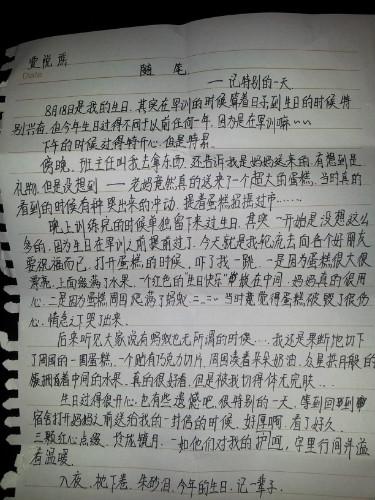 Date
随笔
——记特别的一天
8月18日是我的生日,其实在军训的时候算着日子到生日的时候特
别兴奋,但今年生日过得不同于以前任何一年,因为是在军训嘛~~
下午的时候过得特开心,但是特累。
傍晚,班主任叫我去拿东西,还告诉我是妈妈送来的,有想到是
礼物,但是没想到——老妈竟然真的送来了一个超大的蛋糕,当时真的
看到的时候有种哭出来的冲动,提着蛋糕招摇过市……
晚上训练完的时候单独留下来过生日,其实一开始是没想这么
多的,因为生日在军训之前提前过了,今天就是我轮流去向各个好朋友
要祝福而已,打开蛋糕的时候,吓了我一跳,一是因为蛋糕很大很
漂亮,上面铺满了水果,一个红色的"生日快乐"带被在中间,妈妈真的很用
心,二是因为蛋糕周围爬满了蚂蚁=.=当时就觉得蛋糕被毁了很伤
心,情急之下哭了出来。
后来听见大家说有蚂蚁也无所谓的时候……我还是果断地切下
了周围的一圈蛋糕,一个贴有巧克力切片,周围浇着朵朵奶油,众星拱月般的
簇拥着中间的水果,真的很好看,但是被我切得体无完肤...
生日过得很开心,也有些遗憾吧,很特别的一天,等到回到
宿舍打开妈妈之前送给我的一封信的时候,好厚啊,看了好久,
三颗红心点缀,一如他们对我的呵护,字里行间并溢
着温暖。
入夜,枕下卷,朱砂泪,今年的生日,记一辈子。